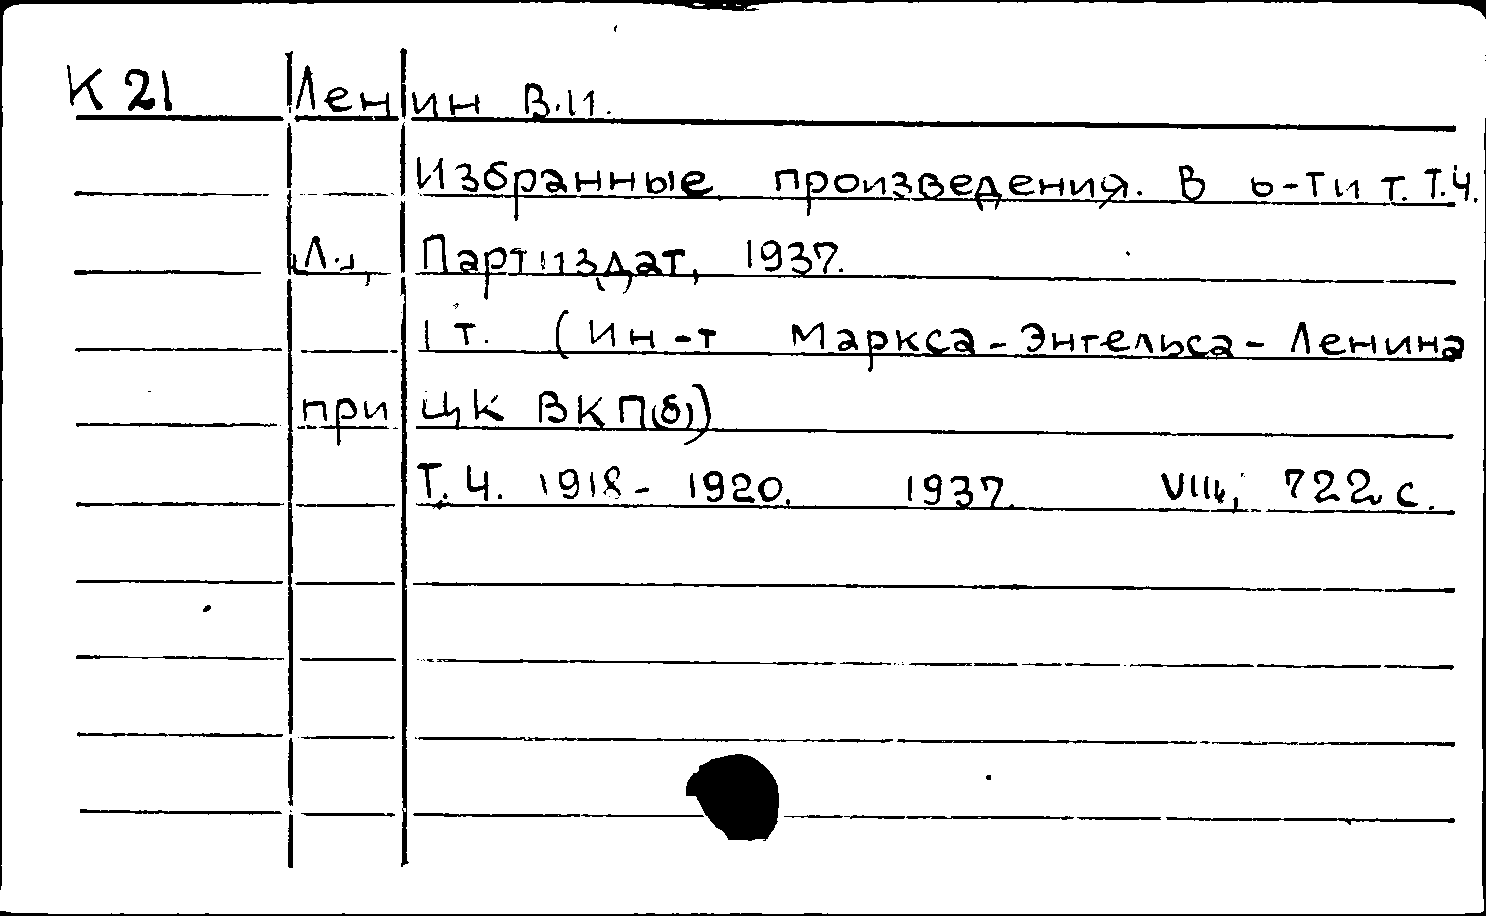 К 21 Ленин В.И.
Избранные произведения. В 6-ти т. Т.4.
Л., Партиздат, 1937.
1 т. (Ин-т Маркса-Энгельса-Ленина
при ЦК ВКП(б))
Т. 4. 1918- 1920. 1937. VIII, 722 с.